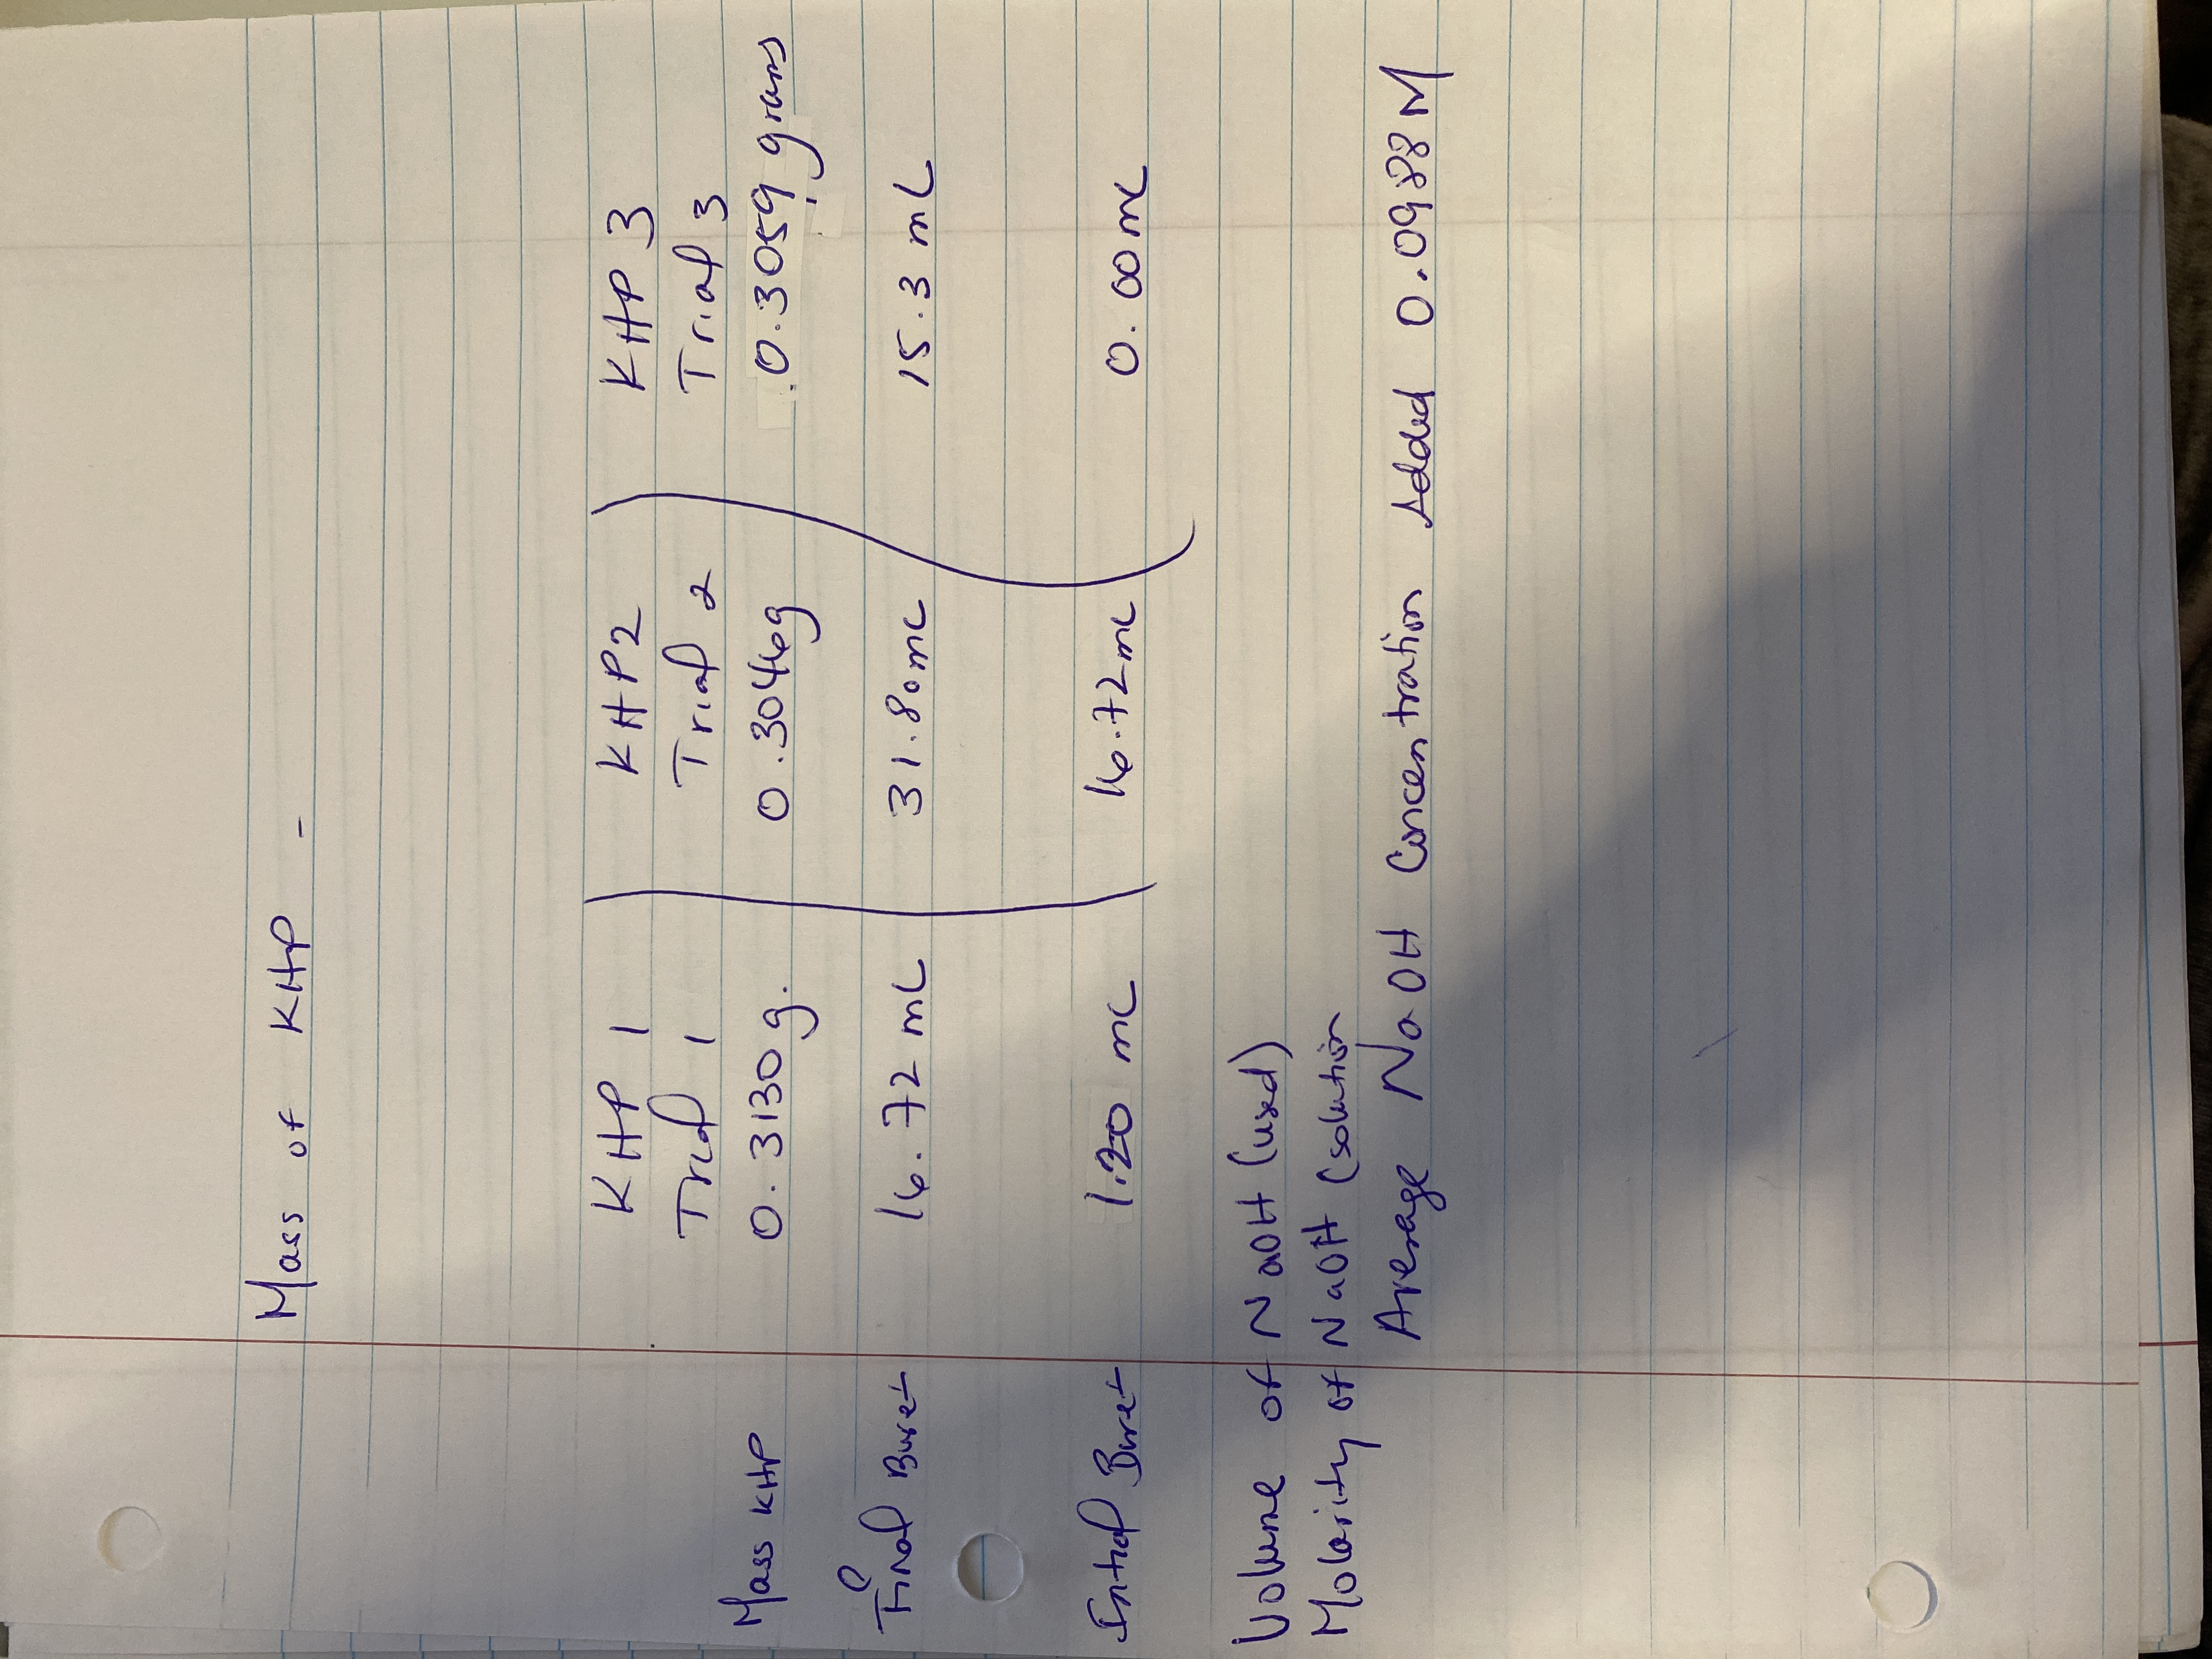 Mass of KHP -
KHP 1 KHP2 KHP 3
Trial 1 Trial 2 Trial 3
Mass KHP 0.3130 g. 0.3046g 0.3059 grams
Final Buret 16.72 mL 31.80 mL 15.3 mL
Initial Buret 1.20 mL 16.72 mL 0.00 mL
Volume of NaOH (used)
Molarity of NaOH (solution
Average NaOH Concentration Added 0.0988 M